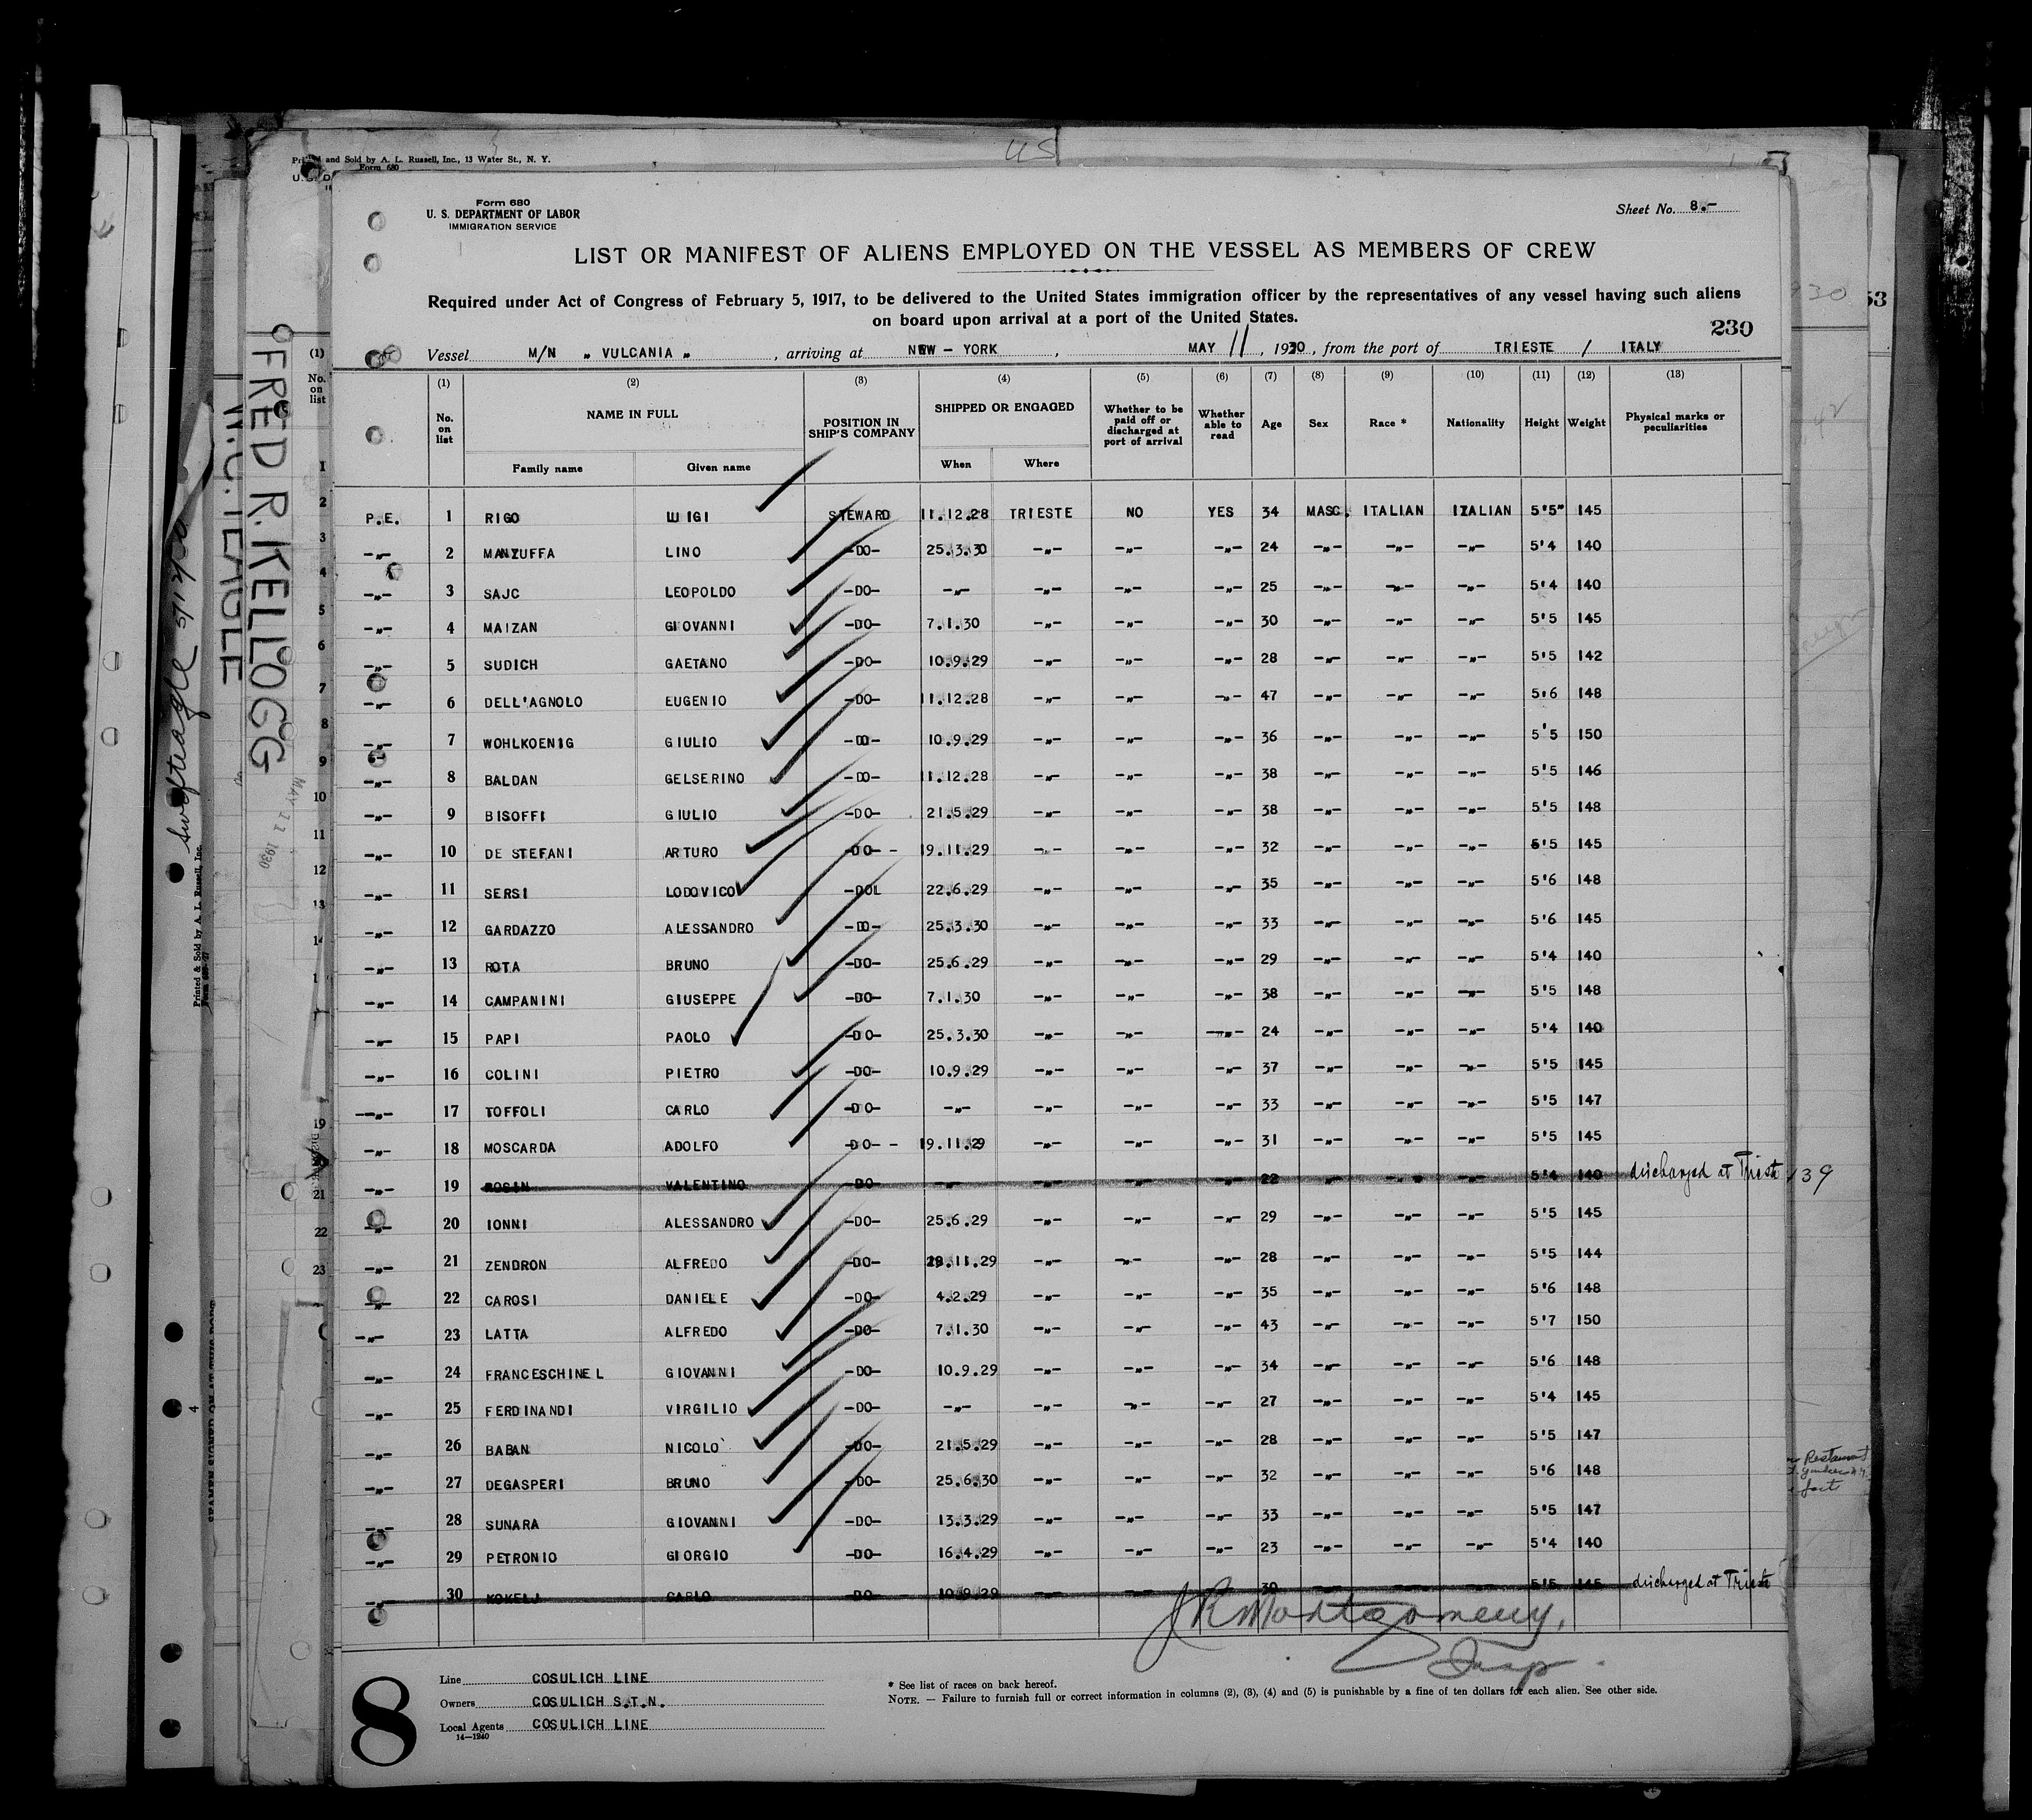 Printed and Sold by A. L. Russell, Inc., 13 Water St., N. Y.
Form 680
US
Form 680
U. S. DEPARTMENT OF LABOR
IMMIGRATION SERVICE
Sheet No. 8.-
LIST OR MANIFEST OF ALIENS EMPLOYED ON THE VESSEL AS MEMBERS OF CREW
Required under Act of Congress of February 5, 1917, to be delivered to the United States immigration officer by the representatives of any vessel having such aliens
on board upon arrival at a port of the United States.
230
Vessel M/N „ VULCANIA „ , arriving at NEW - YORK , MAY 11 , 1930 , from the port of TRIESTE / ITALY
(1) (2) (3) (4) (5) (6) (7) (8) (9) (10) (11) (12) (13)
No. on list NAME IN FULL POSITION IN SHIP'S COMPANY SHIPPED OR ENGAGED Whether to be paid off or discharged at port of arrival Whether able to read Age Sex Race * Nationality Height Weight Physical marks or peculiarities
Family name Given name When Where
P.E. 1 RIGO LUIGI STEWARD 11.12.28 TRIESTE NO YES 34 MASC. ITALIAN ITALIAN 5'5" 145
-"- 2 MANZUFFA LINO -DO- 25.3.30 -"- -"- -"- 24 -"- -"- -"- 5'4 140
-"- 3 SAJC LEOPOLDO -DO- -"- -"- -"- -"- 25 -"- -"- -"- 5'4 140
-"- 4 MAIZAN GIOVANNI -DO- 7.1.30 -"- -"- -"- 30 -"- -"- -"- 5'5 145
-"- 5 SUDICH GAETANO -DO- 10.9.29 -"- -"- -"- 28 -"- -"- -"- 5'5 142
-"- 6 DELL'AGNOLO EUGENIO -DO- 11.12.28 -"- -"- -"- 47 -"- -"- -"- 5'6 148
-"- 7 WOHLKOENIG GIULIO -DO- 10.9.29 -"- -"- -"- 36 -"- -"- -"- 5'5 150
-"- 8 BALDAN GELSERINO -DO- 11.12.28 -"- -"- -"- 38 -"- -"- -"- 5'5 146
-"- 9 BISOFFI GIULIO -DO- 21.5.29 -"- -"- -"- 38 -"- -"- -"- 5'5 148
-"- 10 DE STEFANI ARTURO -DO- - 19.11.29 -"- -"- -"- 32 -"- -"- -"- 5'5 145
-"- 11 SERSI LODOVICO -DOL 22.6.29 -"- -"- -"- 35 -"- -"- -"- 5'6 148
-"- 12 GARDAZZO ALESSANDRO -DO- 25.3.30 -"- -"- -"- 33 -"- -"- -"- 5'6 145
-"- 13 ROTA BRUNO -DO- 25.6.29 -"- -"- -"- 29 -"- -"- -"- 5'4 140
-"- 14 CAMPANINI GIUSEPPE -DO- 7.1.30 -"- -"- -"- 38 -"- -"- -"- 5'5 148
-"- 15 PAPI PAOLO -DO- 25.3.30 -"- -"- -"- 24 -"- -"- -"- 5'4 140
-"- 16 COLINI PIETRO -DO- 10.9.29 -"- -"- -"- 37 -"- -"- -"- 5'5 145
-"- 17 TOFFOLI CARLO -DO- -"- -"- -"- -"- 33 -"- -"- -"- 5'5 147
-"- 18 MOSCARDA ADOLFO -DO- - 19.11.29 -"- -"- -"- 31 -"- -"- -"- 5'5 145
-"- 19 ROSIN VALENTINO -DO- -"- -"- -"- -"- 22 -"- -"- -"- 5'4 140 discharged at Trieste 139
-"- 20 IONNI ALESSANDRO -DO- 25.6.29 -"- -"- -"- 29 -"- -"- -"- 5'5 145
-"- 21 ZENDRON ALFREDO -DO- 29.11.29 -"- -"- -"- 28 -"- -"- -"- 5'5 144
-"- 22 CAROSI DANIELE -DO- 4.2.29 -"- -"- -"- 35 -"- -"- -"- 5'6 148
-"- 23 LATTA ALFREDO -DO- 7.1.30 -"- -"- -"- 43 -"- -"- -"- 5'7 150
-"- 24 FRANCESCHINEL GIOVANNI -DO- 10.9.29 -"- -"- -"- 34 -"- -"- -"- 5'6 148
-"- 25 FERDINANDI VIRGILIO -DO- -"- -"- -"- -"- 27 -"- -"- -"- 5'4 145
-"- 26 BABAN NICOLO` -DO- 21.5.29 -"- -"- -"- 28 -"- -"- -"- 5'5 147
-"- 27 DEGASPERI BRUNO -DO- 25.6.30 -"- -"- -"- 32 -"- -"- -"- 5'6 148
-"- 28 SUNARA GIOVANNI -DO- 13.3.29 -"- -"- -"- 33 -"- -"- -"- 5'5 147
-"- 29 PETRONIO GIORGIO -DO- 16.4.29 -"- -"- -"- 23 -"- -"- -"- 5'4 140
-"- 30 KOKELJ CARLO -DO- 10.9.29 -"- -"- -"- 30 -"- -"- -"- 5'5 145 discharged at Trieste
JR Montgomery,
Insp.
8
Line COSULICH LINE
Owners COSULICH S.T.N.
Local Agents COSULICH LINE
14—1240
* See list of races on back hereof.
NOTE. — Failure to furnish full or correct information in columns (2), (3), (4) and (5) is punishable by a fine of ten dollars for each alien. See other side.
FRED R. KELLOGG
W.C. TEAGLE
MAY 11 1930
Printed & Sold by A. L. Russell, Inc.
53